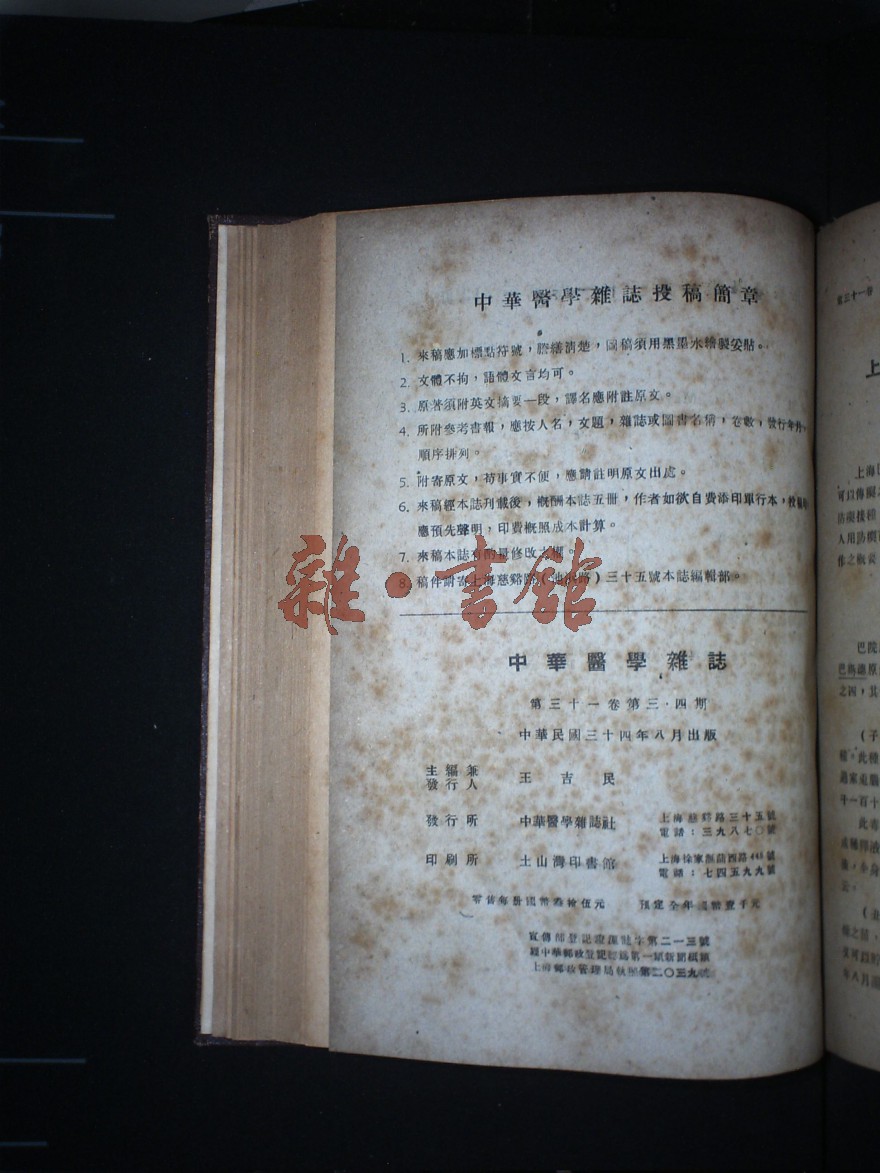 中華醫學雜誌投稿簡章
1. 來稿應加標點符號，謄繕清楚，圖稿須用黑墨水繪製妥貼。
2. 文體不拘，語體文言均可。
3. 原著須附英文摘要一段，譯名應附註原文。
4. 所附參考書報，應按人名，文題，雜誌或圖書名稱，卷數，發行年月，
順序排列。
5. 附寄原文，苟事實不便，應請註明原文出處。
6. 來稿經本誌刊載後，概酬本誌五冊，作者如欲自費添印單行本，投稿時
應預先聲明，印費概照成本計算。
7. 來稿本誌有酌量修改之權。
8. 稿件請寄上海慈谿路（池浜路）三十五號本誌編輯部。
雜·書館
中華醫學雜誌
第三十一卷第三·四期
中華民國三十四年八月出版
主編兼
發行人 王吉民
發行所 中華醫學雜誌社 上海慈谿路三十五號
電話：三九八七〇號
印刷所 土山灣印書館 上海徐家匯蒲西路448號
電話：七四五九九號
零售每份國幣叁拾伍元 預定全年國幣壹千元
宣傳部登記證滬誌字第二一三號
經中華郵政登記認為第一類新聞紙類
上海郵政管理局執照第二〇三九號
第三十一卷
上
上海
巴院